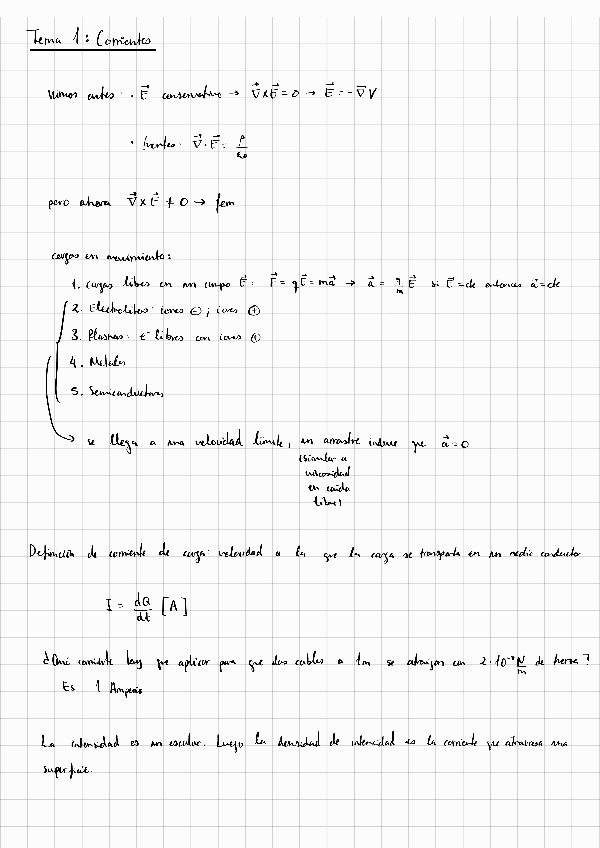 Tema 1: Corrientes
Vimos antes: · E⃗ conservativo → ∇⃗×E⃗ = 0 → E⃗ = -∇⃗V
· fuentes: ∇⃗·E⃗ = ρ/ε₀
pero ahora ∇⃗×E⃗ ≠ 0 → fem
cargas en movimiento:
1. Cargas libres en un campo E⃗: F⃗ = qE⃗ = ma⃗ → a⃗ = q/m E⃗ si E⃗=cte entonces a⃗=cte
2. Electrolitos: iones ⊖; iones ⊕
3. Plasmas: e⁻ libres con iones ⊕
4. Metales
5. Semiconductores
se llega a una velocidad límite, un arrastre induce que a⃗=0
(similar a
viscosidad
en caída
libre)
Definición de corriente de carga: velocidad a la que la carga se transporta en un medio conductor
I = dQ/dt [A]
¿Qué corriente hay que aplicar para que dos cables a 1m se atraigan con 2·10⁻⁷ N/m de fuerza?
Es 1 Amperio
La intensidad es un escalar. Luego la densidad de intensidad es la corriente que atraviesa una
superficie.